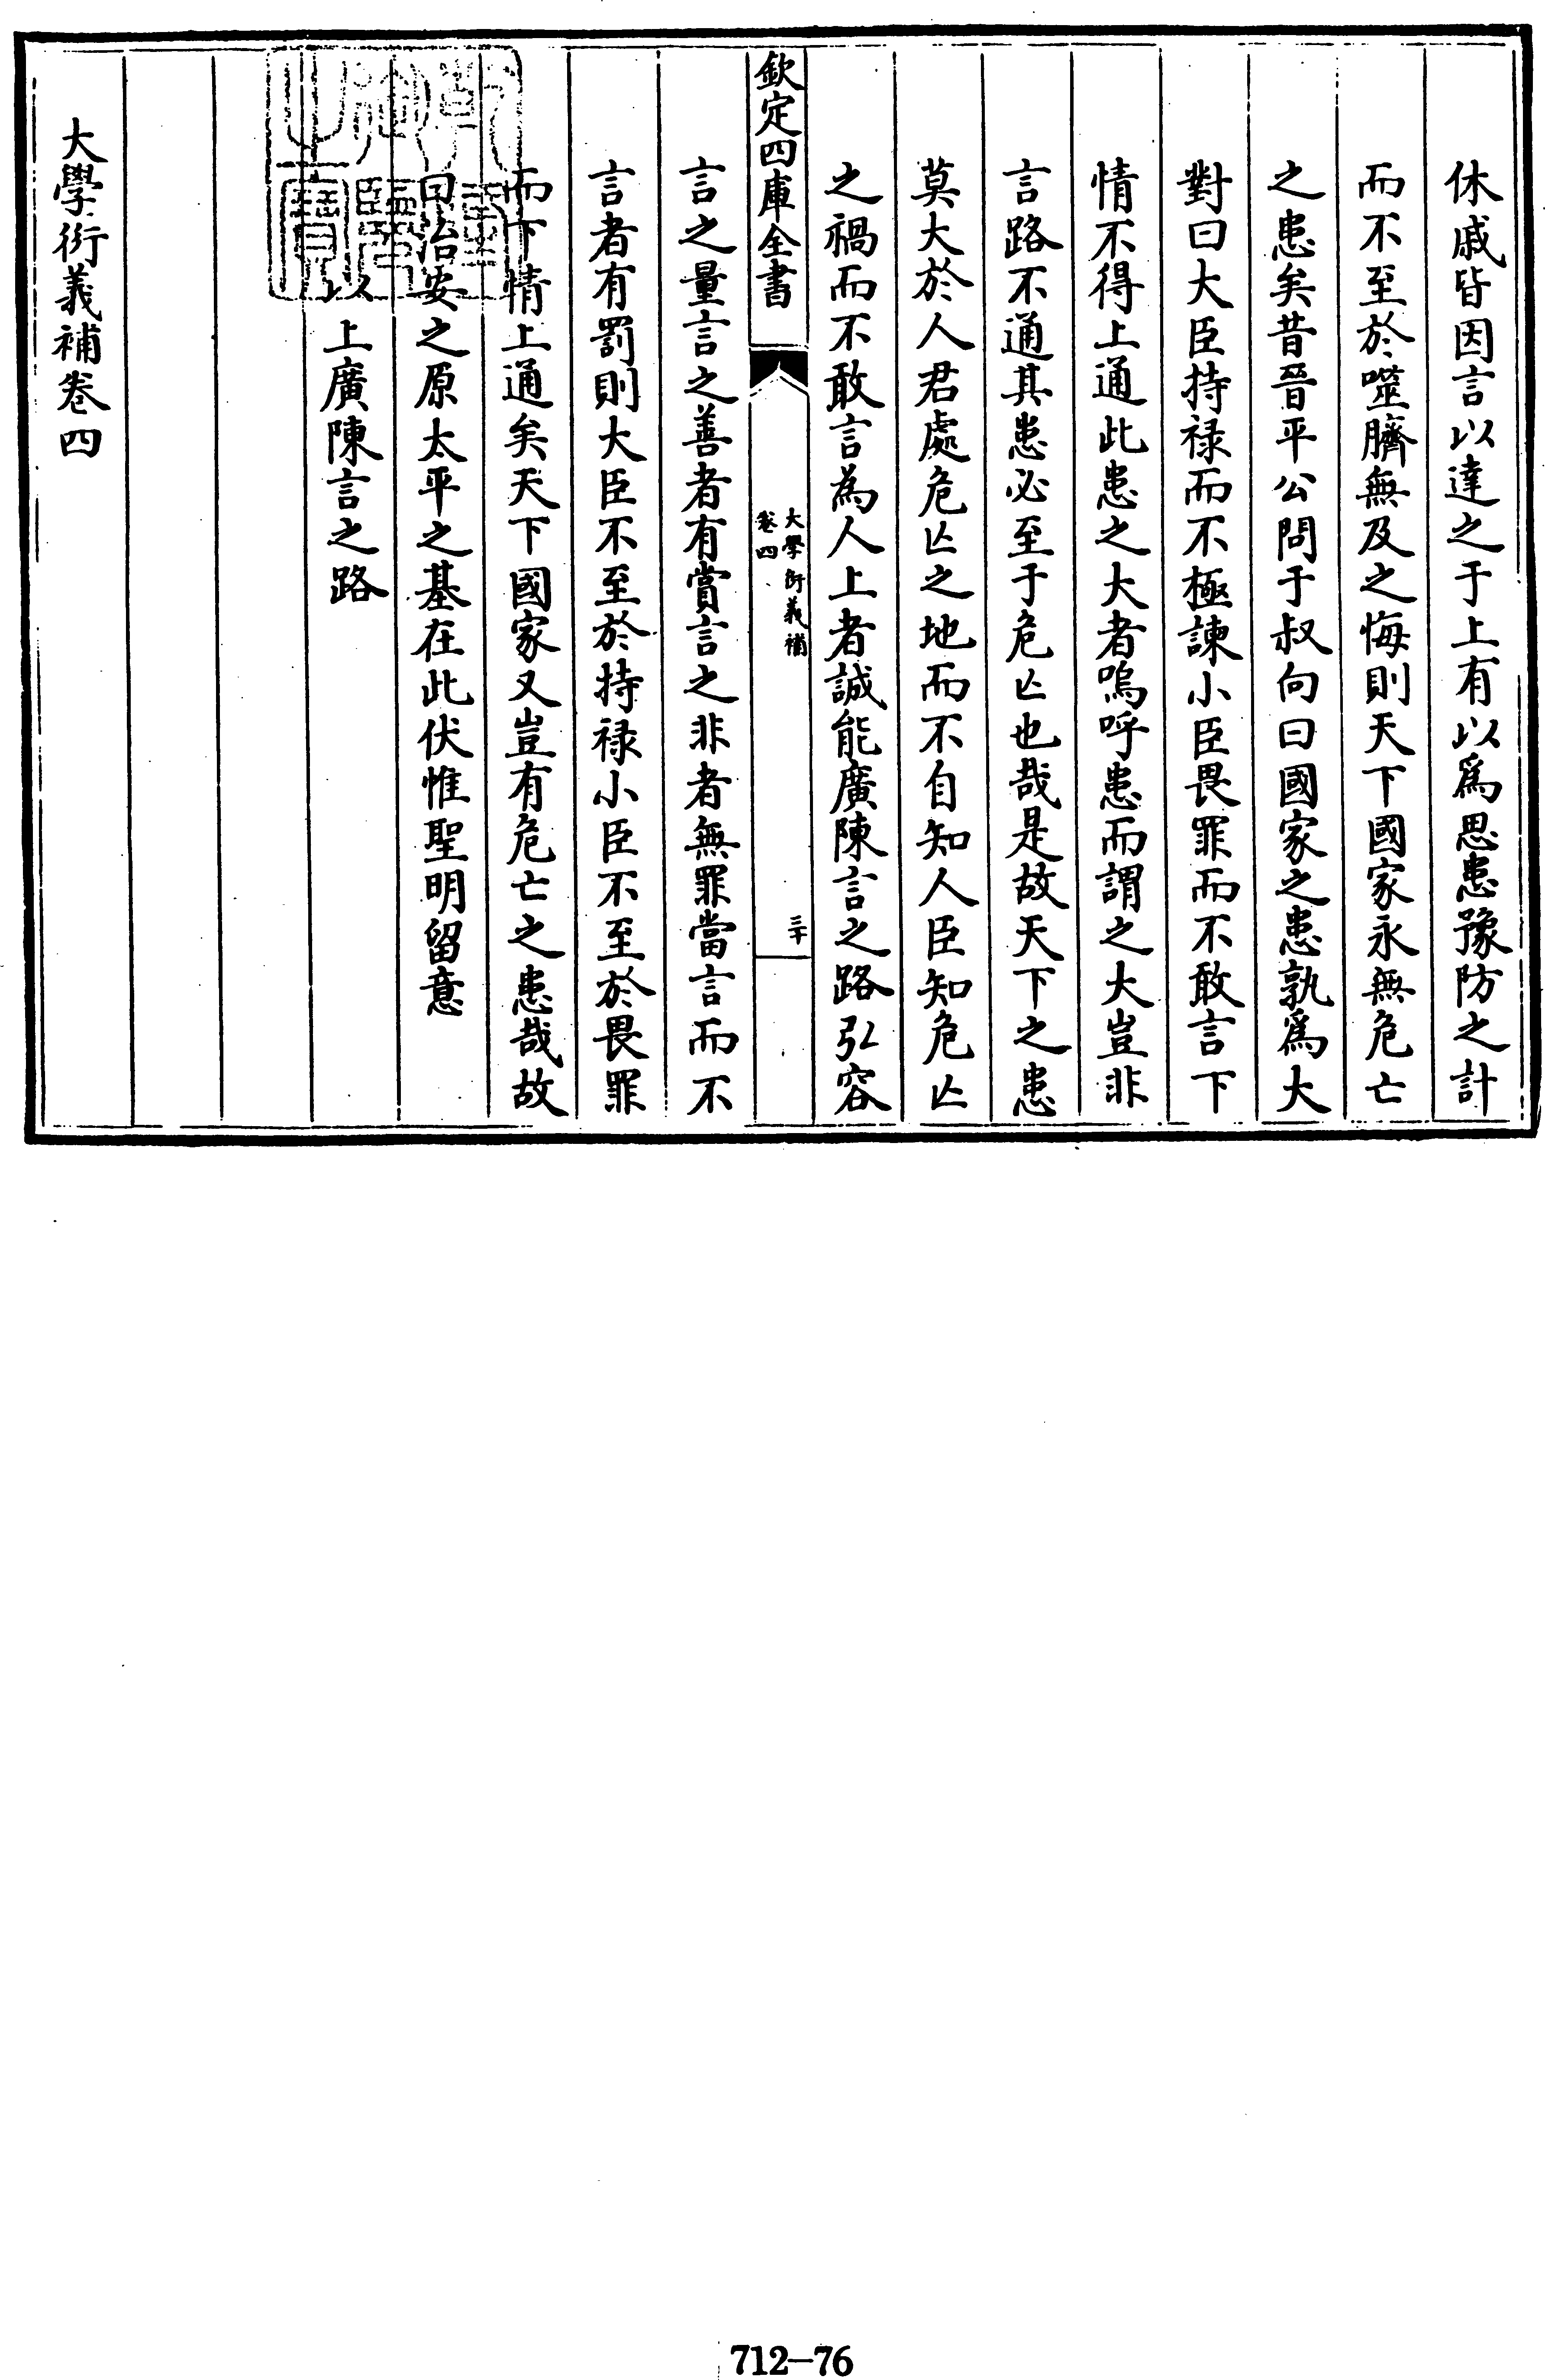 休戚皆因言以達之于上有以爲思患豫防之計
而不至於噬臍無及之悔則天下國家永無危亡
之患矣昔晉平公問于叔向曰國家之患孰爲大
對曰大臣持禄而不極諫小臣畏罪而不敢言下
情不得上通此患之大者嗚呼患而謂之大豈非
言路不通其患必至于危亾也哉是故天下之患
莫大於人君處危亾之地而不自知人臣知危亾
之禍而不敢言為人上者誠能廣陳言之路弘容
欽定四庫全書
大學衍義補
卷四
三十
言之量言之善者有賞言之非者無罪當言而不
言者有罰則大臣不至於持禄小臣不至於畏罪
而下情上通矣天下國家又豈有危亡之患哉故
曰治安之原太平之基在此伏惟聖明留意
以上廣陳言之路
大學衍義補卷四
712-76